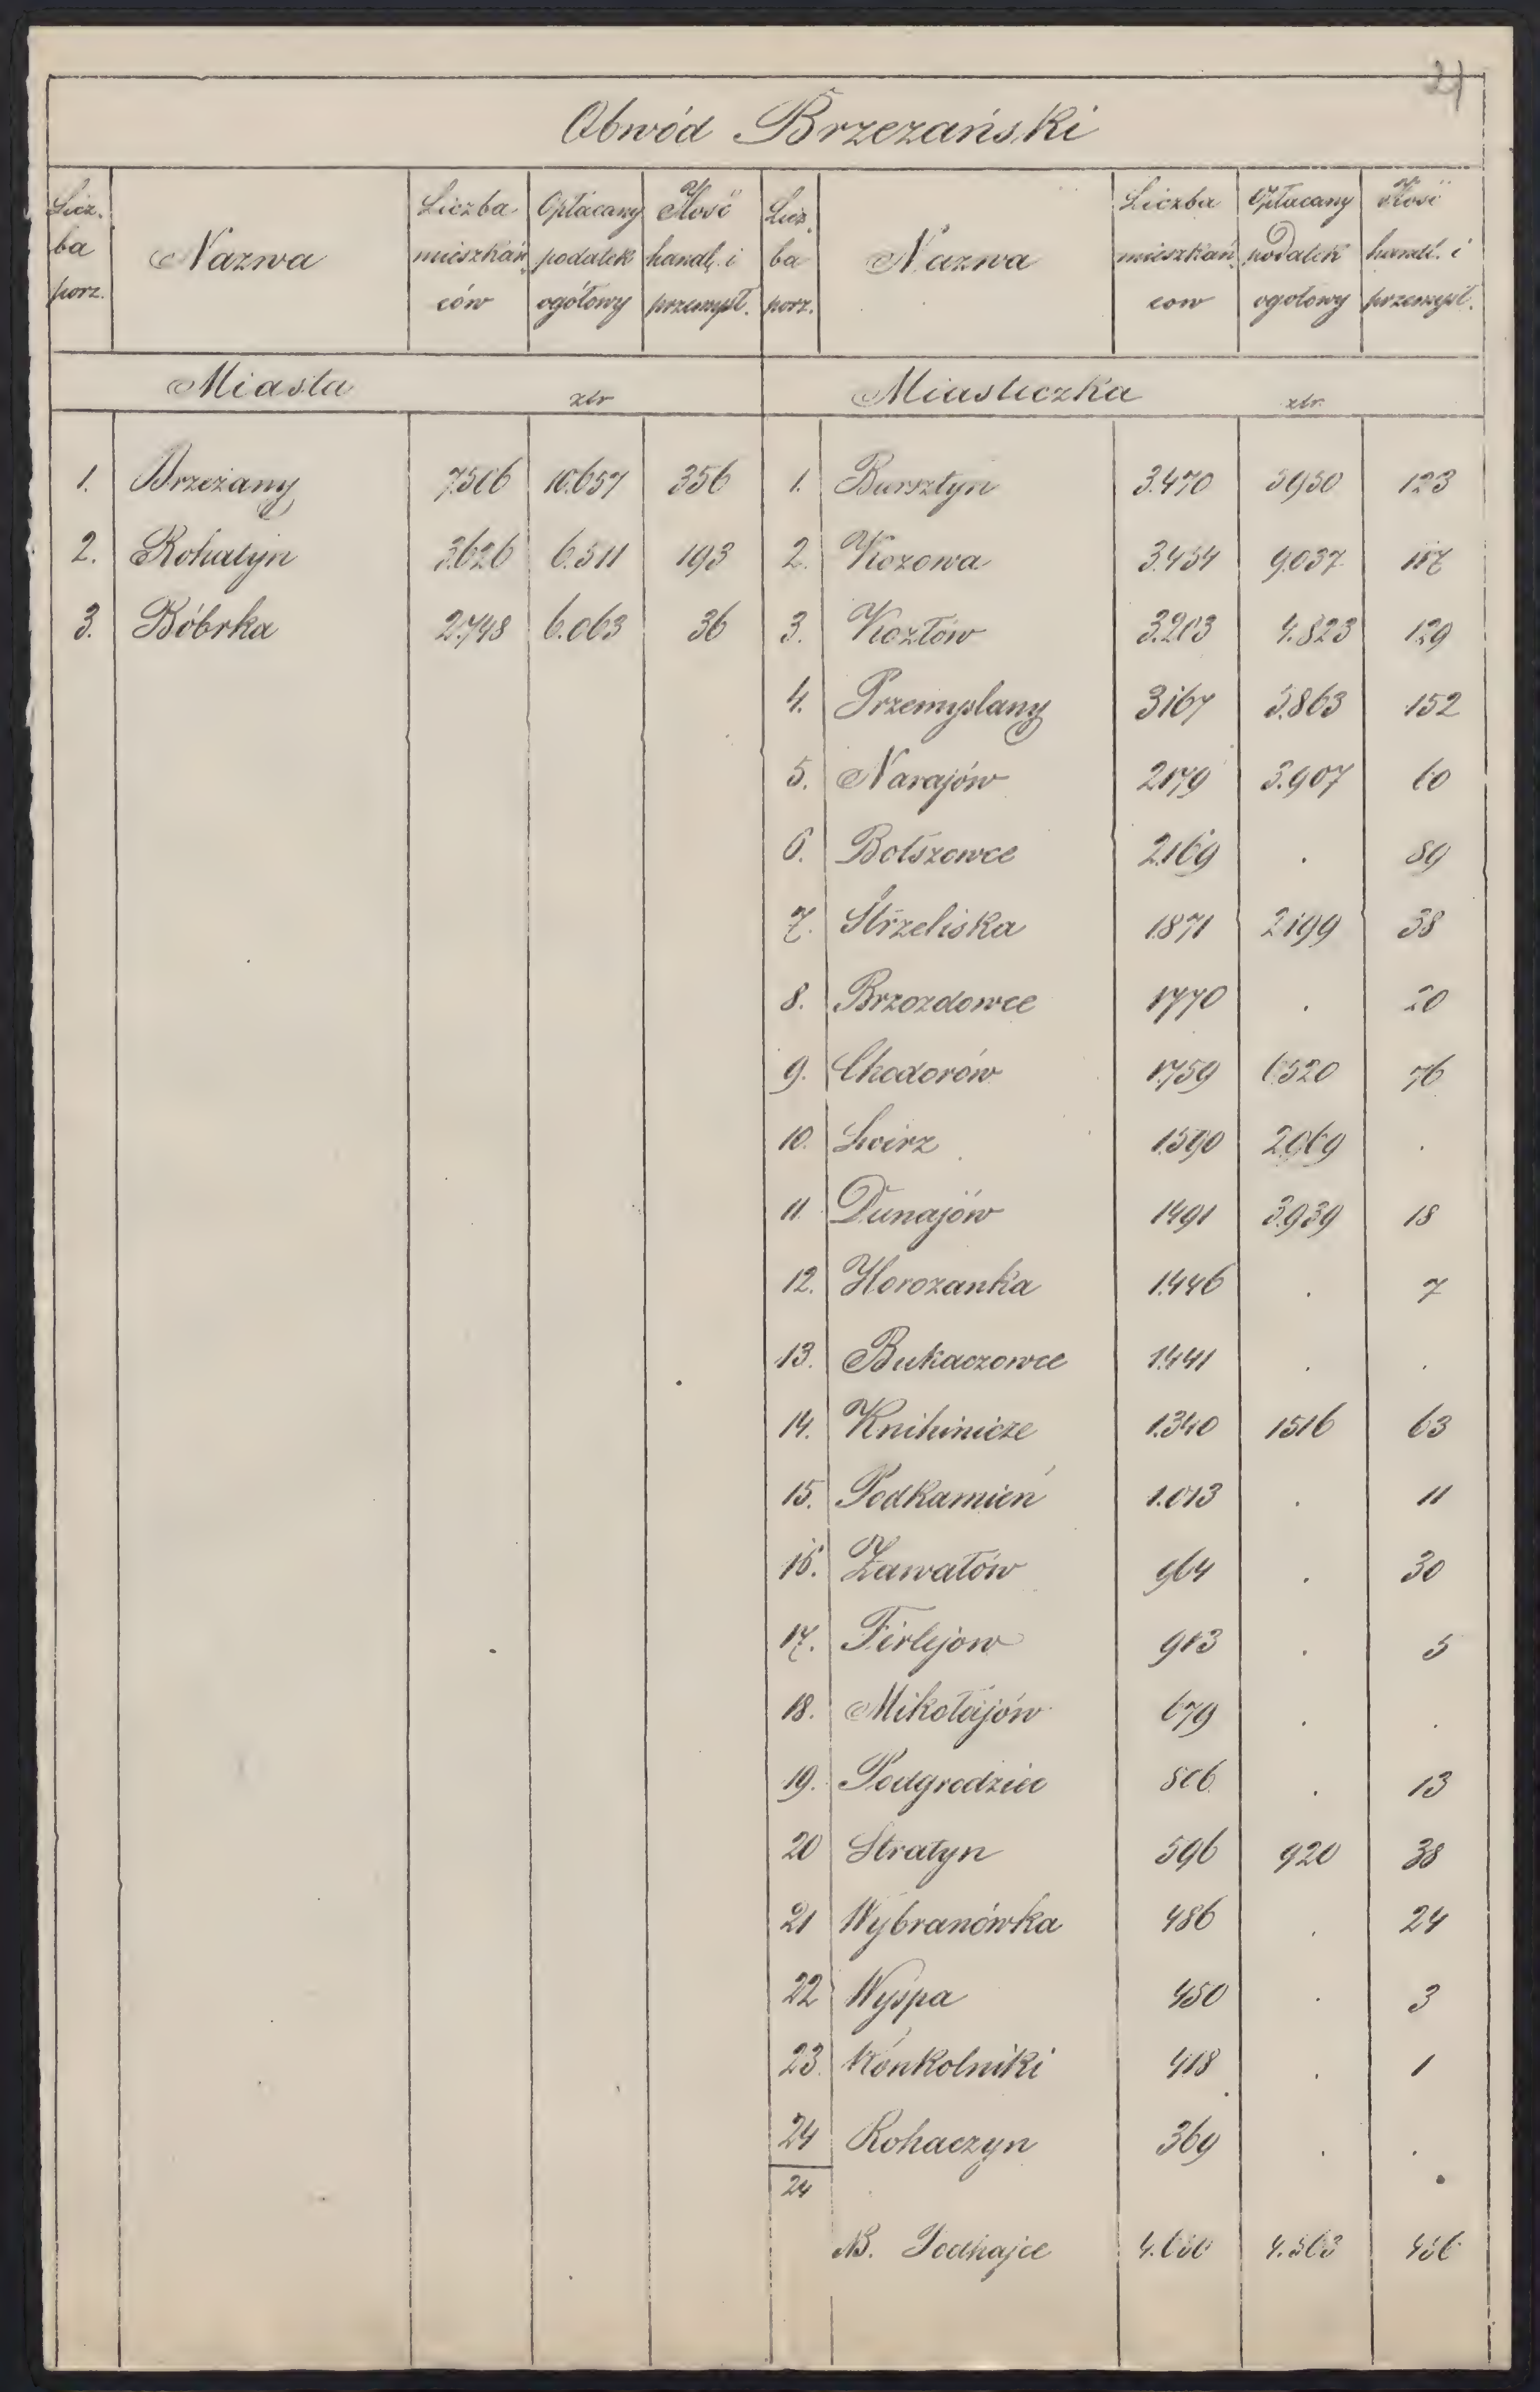 21
Obwód Brzezański
Licz. ba porz. | Nazwa | Liczba mieszkań ców | Opłacany podatek ogółowy | Ilość handl. i przemysł. | Licz. ba porz. | Nazwa | Liczba mieszkań cow | Opłacany podatek ogołowy | Ilość handl. i przemysł.
Miasta złr Miasteczka złr.
1. Brzeżany 7.506 10.657 356 1. Bursztyn 3.470 5950 123
2. Rohatyn 3.626 6.511 193 2. Kozowa 3.454 9.037 117
3. Bóbrka 2.748 6.063 36 3. Kozłów 3.203 4.823 129
4. Przemyslany 3167 5.863 152
5. Narajów 2179 3.907 60
6. Bołszowce 2.169 . 89
7. Strzeliska 1.871 2199 38
8. Brzozdowce 1770 . 20
9. Chodorów 1.759 6.520 76
10. Swirz 1.590 2.969 .
11. Dunajów 1491 3.939 18
12. Horozanka 1.446 . 7
13. Bukaczowce 1.441 . .
14. Knihinicze 1.340 1516 63
15. Podkamień 1.013 . 11
16. Zawałów 964 . 30
17. Firlejow 913 . 5
18. Mikołajów 679 . .
19. Podgrodzie 806 . 13
20 Stratyn 596 920 38
21 Wybranówka 486 . 24
22 Wyspa 450 . 3
23. Kónkolniki 418 . 1
24 Rohaczyn 369 . .
24
NB. Podhajce